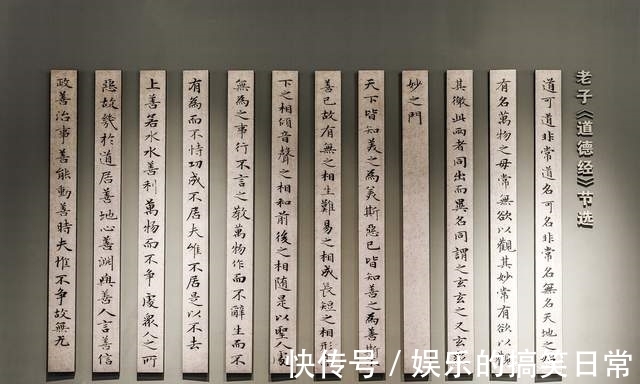 老子《道德经》节选
道可道非常道名可名非常名無名天地之
有名萬物之母常無欲以觀其妙常有欲以
其徼此兩者同出而異名同謂之玄玄之又玄
妙之門
天下皆知美之為美斯惡已皆知善之為善
善已故有無之相生難易之相成長短之相形
下之相傾音聲之相和前後之相随是以聖人處
無為之事行不言之教萬物作而不辭生而不
有為而不恃功成不居夫惟不居是以不去
上善若水水善利萬物而不爭處衆人之所
惡故幾於道居善地心善淵與善人言善信
政善治事善能動善時夫惟不爭故無尤
快传号 / 娱乐的搞笑日常